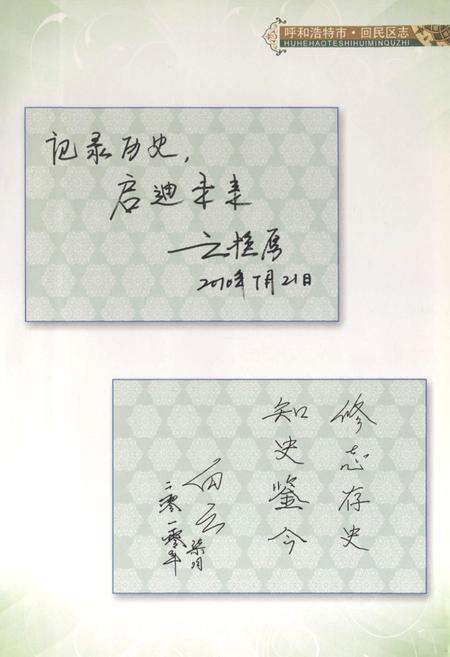 呼和浩特市·回民区志
HUHEHAOTESHIHUIMINQUZHI
记录历史，
启迪未来
2010年7月21日
修志存史
知史鉴今
二零一零年